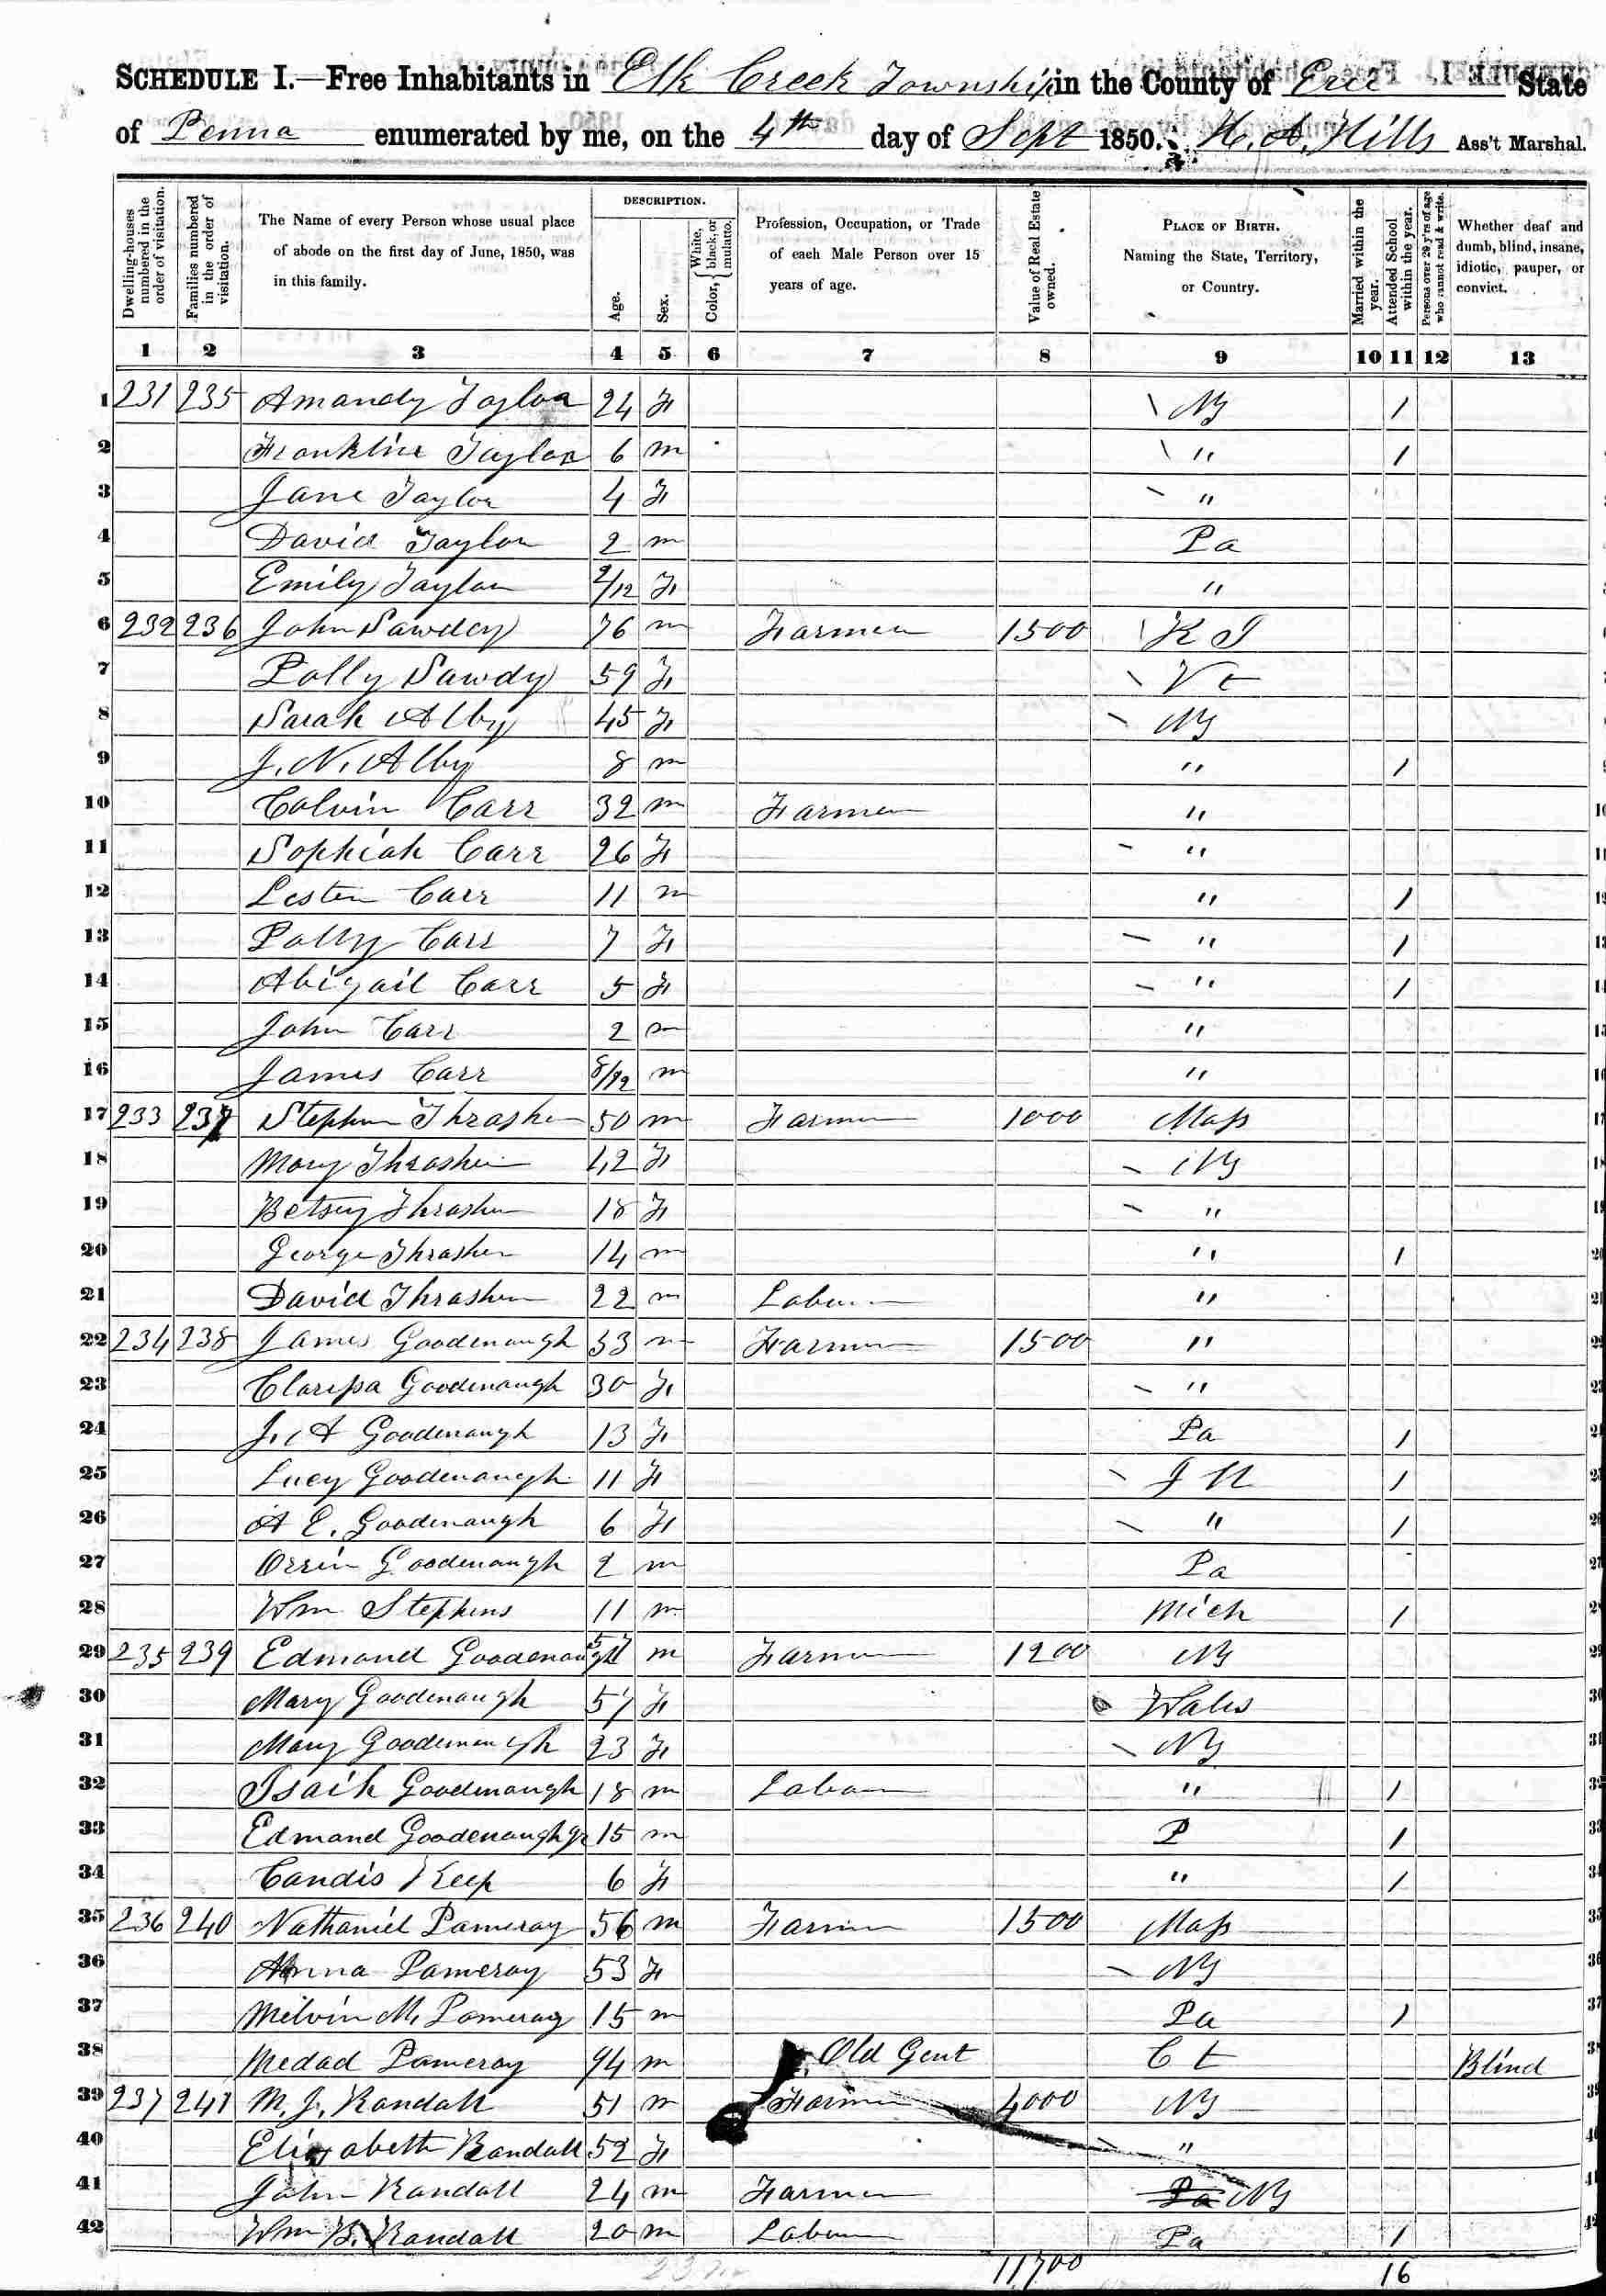 SCHEDULE I.—Free Inhabitants in Elk Creek Township in the County of Erie State
of Penna enumerated by me, on the 4th day of Sept 1850. H. A. Hills Ass't Marshal.
Dwelling-houses numbered in the order of visitation.
Families numbered in the order of visitation.
The Name of every Person whose usual place of abode on the first day of June, 1850, was in this family.
DESCRIPTION.
Age.
Sex.
Color, { White, black, or mulatto.
Profession, Occupation, or Trade of each Male Person over 15 years of age.
Value of Real Estate owned.
PLACE OF BIRTH. Naming the State, Territory, or Country.
Married within the year.
Attended School within the year.
Persons over 20 y'rs of age who cannot read & write.
Whether deaf and dumb, blind, insane, idiotic, pauper, or convict.
1 2 3 4 5 6 7 8 9 10 11 12 13
1 231 235 Amandy Taylor 24 F NY 1
2 Franklin Taylor 6 m " 1
3 Jane Taylor 4 F "
4 David Taylor 2 m Pa
5 Emily Taylor 2/12 F "
6 232 236 John Sawdey 76 m Farmer 1500 R I
7 Polly Sawdy 59 F Vt
8 Sarah Alby 45 F NY
9 J. N. Alby 8 m " 1
10 Colvin Carr 32 m Farmer "
11 Sophiah Carr 26 F "
12 Lester Carr 11 m " 1
13 Polly Carr 7 F " 1
14 Abigail Carr 5 F " 1
15 John Carr 2 m "
16 James Carr 8/12 m "
17 233 237 Stephen Thrasher 50 m Farmer 1000 Mass
18 Mary Thrasher 42 F NY
19 Betsey Thrasher 18 F "
20 George Thrasher 14 m " 1
21 David Thrasher 22 m Laborer "
22 234 238 James Goodenough 33 m Farmer 1500 "
23 Clarissa Goodenough 30 F "
24 J. A Goodenough 13 F Pa 1
25 Lucy Goodenough 11 F Ill 1
26 A E. Goodenough 6 F " 1
27 Orrin Goodenough 2 m Pa
28 Wm Stephens 11 m Mich 1
29 235 239 Edmond Goodenough 57 m Farmer 1200 NY
30 Mary Goodenough 57 F Wales
31 Mary Goodenough 23 F NY
32 Isaih Goodenough 18 m Laborer " 1
33 Edmond Goodenough Jr 15 m P 1
34 Candis Keep 6 F " 1
35 236 240 Nathaniel Pameroy 56 m Farmer 1500 Mass
36 Anna Pameroy 53 F NY
37 Melvin M. Pomeroy 15 m Pa 1
38 Medad Pameroy 94 m Old Gent Ct Blind
39 237 241 M. J. Randall 51 m Farmer 4000 NY
40 Elizabeth Randall 52 F "
41 John Randall 24 m Farmer Pa NY
42 Wm B. Randall 20 m Laborer Pa 1
11700 16